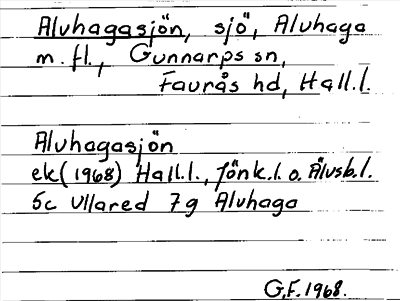 Aluhagasjön, sjö, Aluhaga
m. fl., Gunnarps sn,
Faurås hd, Hall.l.
Aluhagasjön
ek(1968) Hall.l., Jönk.l. o. Älvsb.l.
5c Ullared 7g Aluhaga
G.F. 1968.